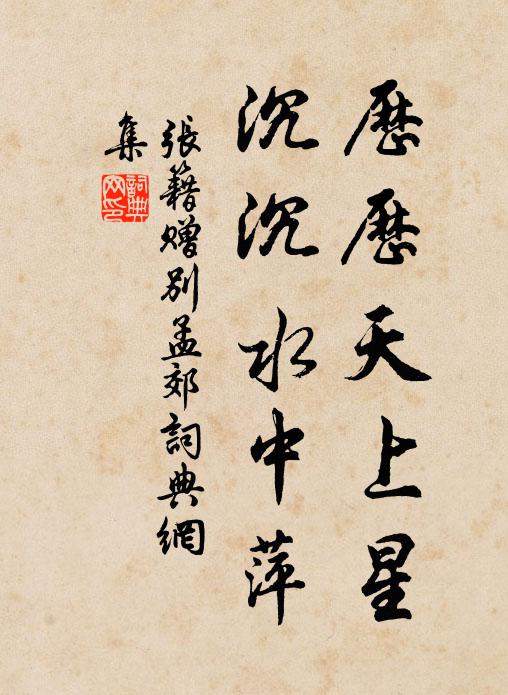 歷歷天上星
沉沉水中萍
張籍贈别孟郊詞典網
集
詞典
网印